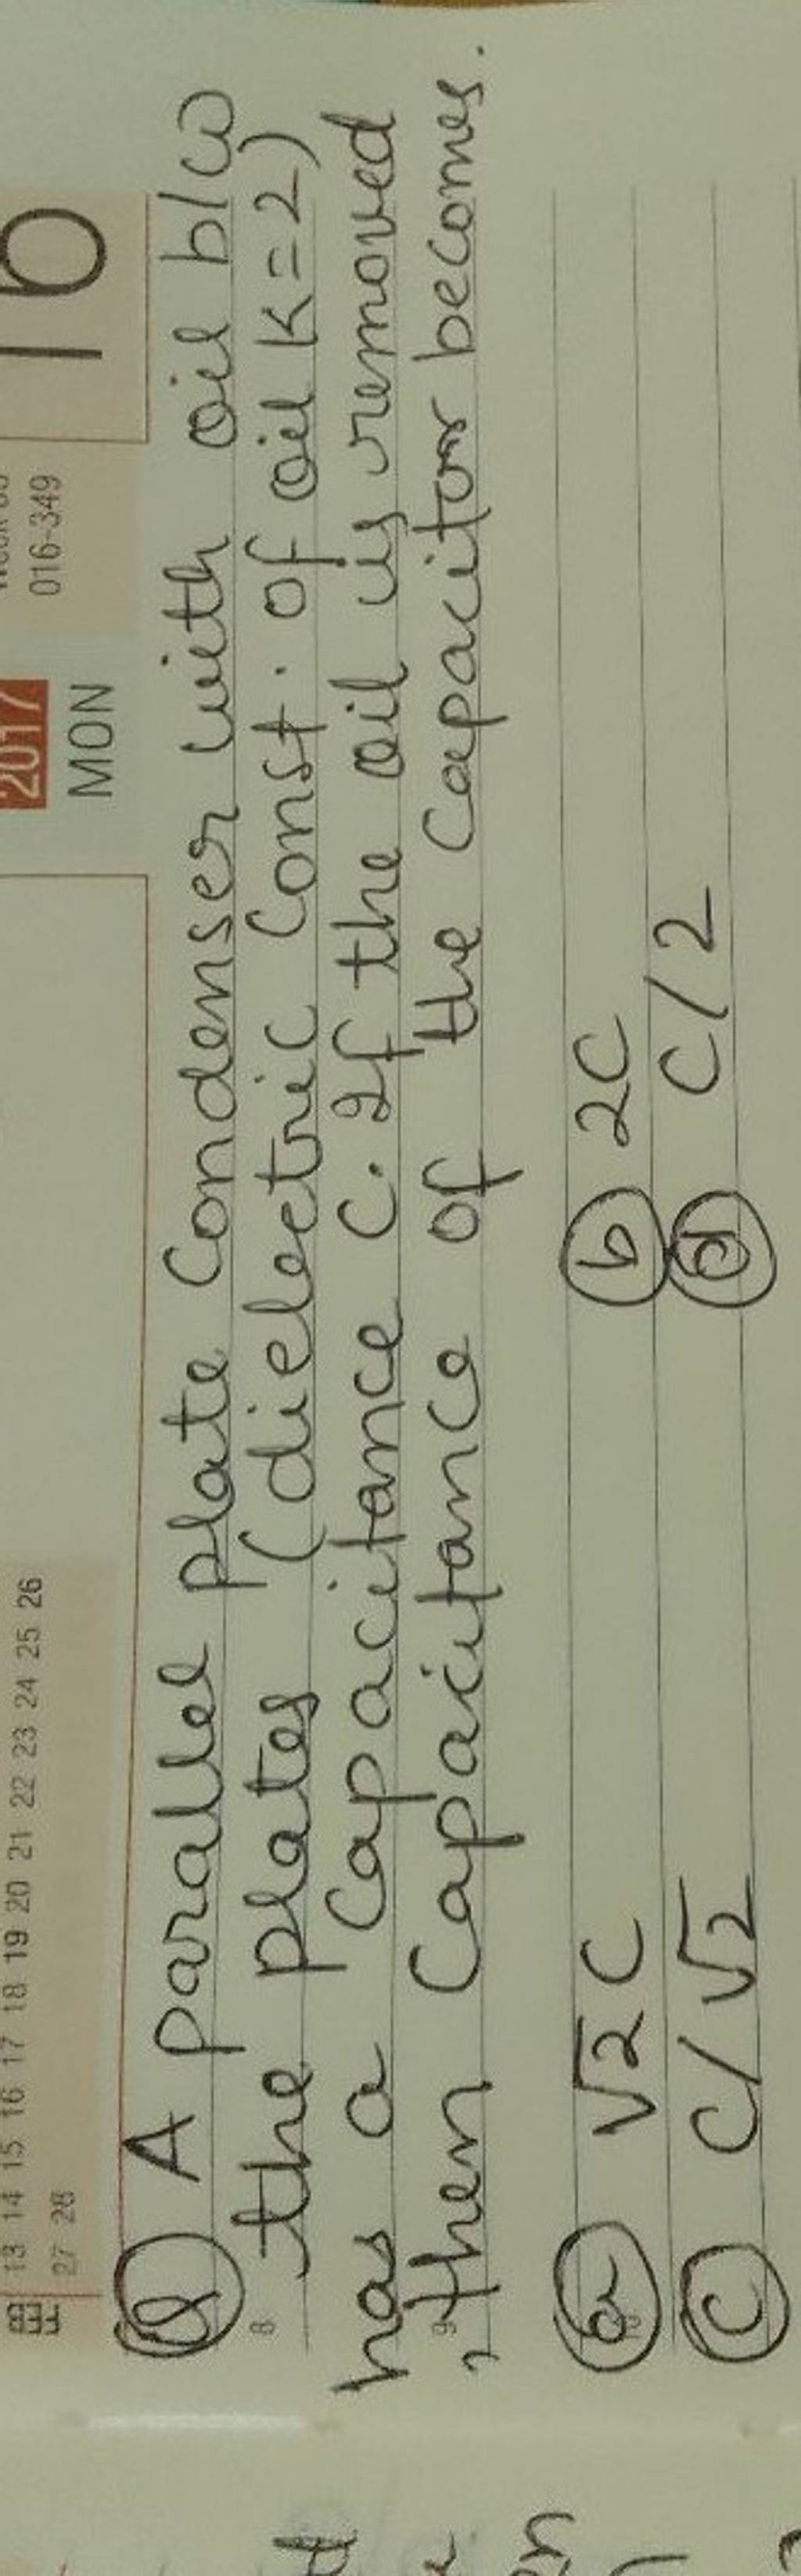 13 14 15 16 17 18 19 20 21 22 23 24 25 26
27 28
2017
MON
016-349
16
Q A parallel plate Condenser with oil b/w
8 the plates (dielectric Const. of oil K=2)
has a Capacitance C. If the oil is removed
9 , then Capacitance of the Capacitor becomes.
a √2 C b 2C
c C/√2 d C/2